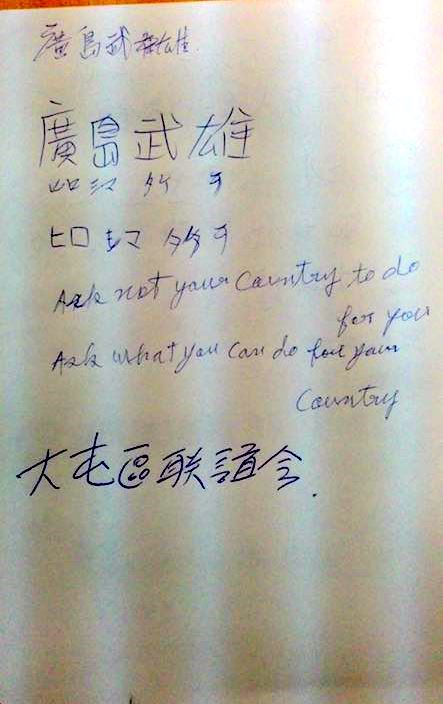 廣島武雄
廣島武雄
ヒロ シマ タケ オ
ヒロ シマ タケ オ
Ask not your Country to do
for you
Ask what you can do for your
Country
大屯區联誼会.